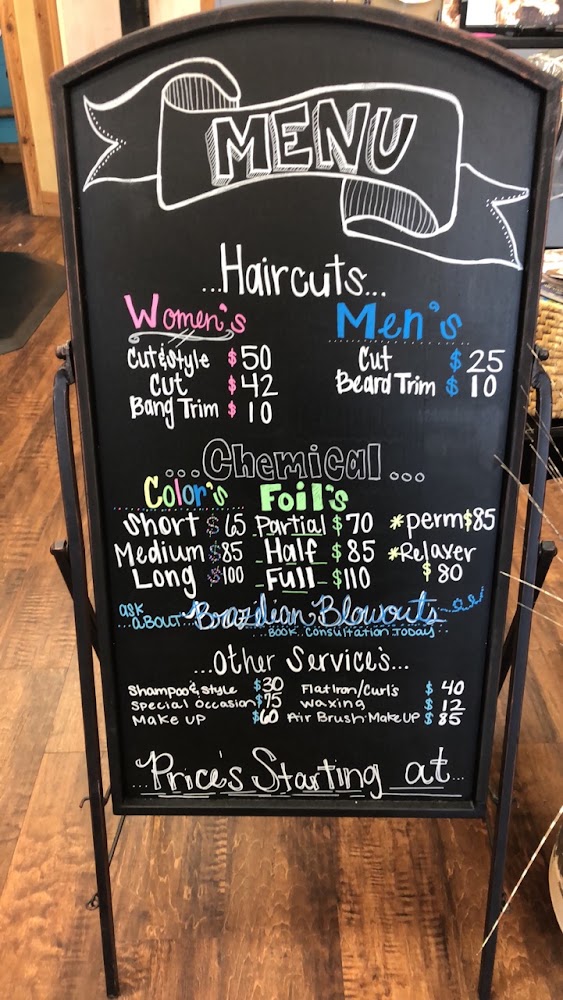 MENU
...Haircuts...
Women's Men's
Cut & Style $50 Cut $25
Cut $42 Beard Trim $10
Bang Trim $10
...Chemical...
Color's Foil's
Short $65 Partial $70 *perm $85
Medium $85 Half $85 *Relaxer
Long $100 Full $110 $80
ask
about... Brazilian Blowouts
...Book..Consultation Today...
...Other Service's...
Shampoo & style $30 Flat Iron/Curl's $40
Special Occasion $75 Waxing $12
Make up $60 Air Brush Make up $85
...Price's Starting at...